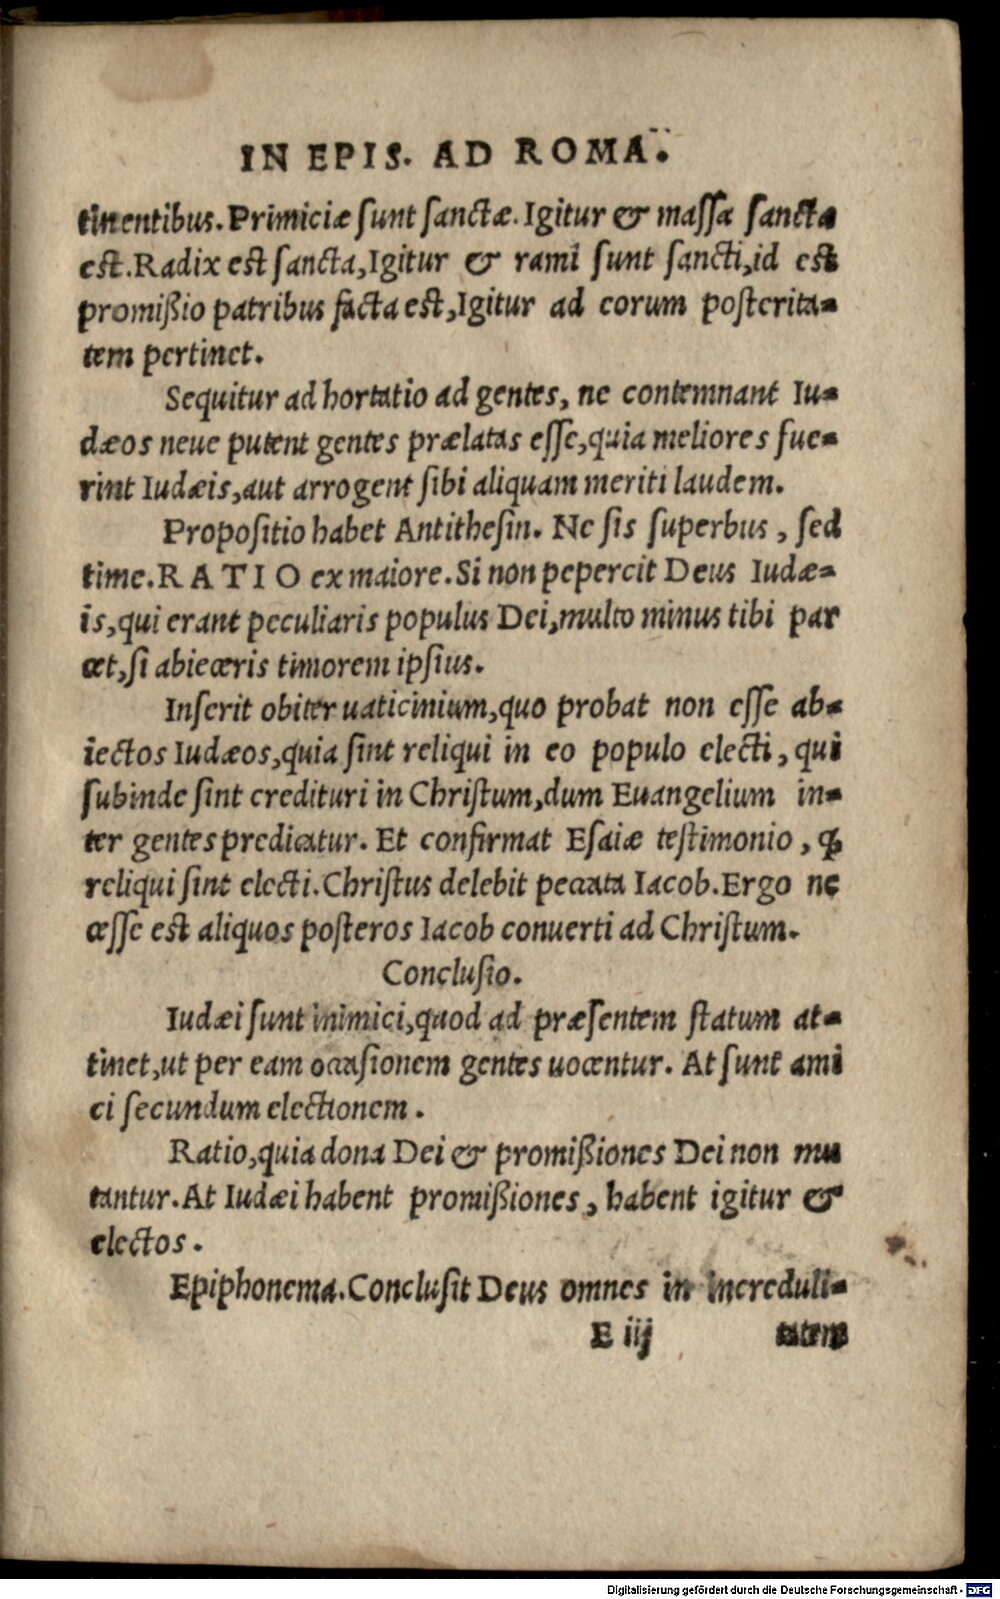 IN EPIS. AD ROMA.
tinentibus. Primiciæ sunt sanctæ. Igitur & massa sancta
est. Radix est sancta, Igitur & rami sunt sancti, id est
promißio patribus facta est, Igitur ad eorum posterita-
tem pertinet.
Sequitur adhortatio ad gentes, ne contemnant Iu-
dæos neue putent gentes prælatas esse, quia meliores fue-
rint Iudæis, aut arrogent sibi aliquam meriti laudem.
Propositio habet Antithesin. Ne sis superbus, sed
time. RATIO ex maiore. Si non pepercit Deus Iudæ-
is, qui erant peculiaris populus Dei, multo minus tibi par
cet, si abieceris timorem ipsius.
Inserit obiter uaticinium, quo probat non esse ab-
iectos Iudæos, quia sint reliqui in eo populo electi, qui
subinde sint credituri in Christum, dum Euangelium in-
ter gentes predicatur. Et confirmat Esaiæ testimonio, ꝙ
reliqui sint electi. Christus delebit peccata Iacob. Ergo ne
cesse est aliquos posteros Iacob conuerti ad Christum.
Conclusio.
Iudæi sunt inimici, quod ad præsentem statum at-
tinet, ut per eam occasionem gentes uocentur. At sunt ami
ci secundum electionem.
Ratio, quia dona Dei & promißiones Dei non mu
tantur. At Iudæi habent promißiones, habent igitur &
electos.
Epiphonema. Conclusit Deus omnes in increduli-
E iij tatem
Digitalisierung gefördert durch die Deutsche Forschungsgemeinschaft - DFG